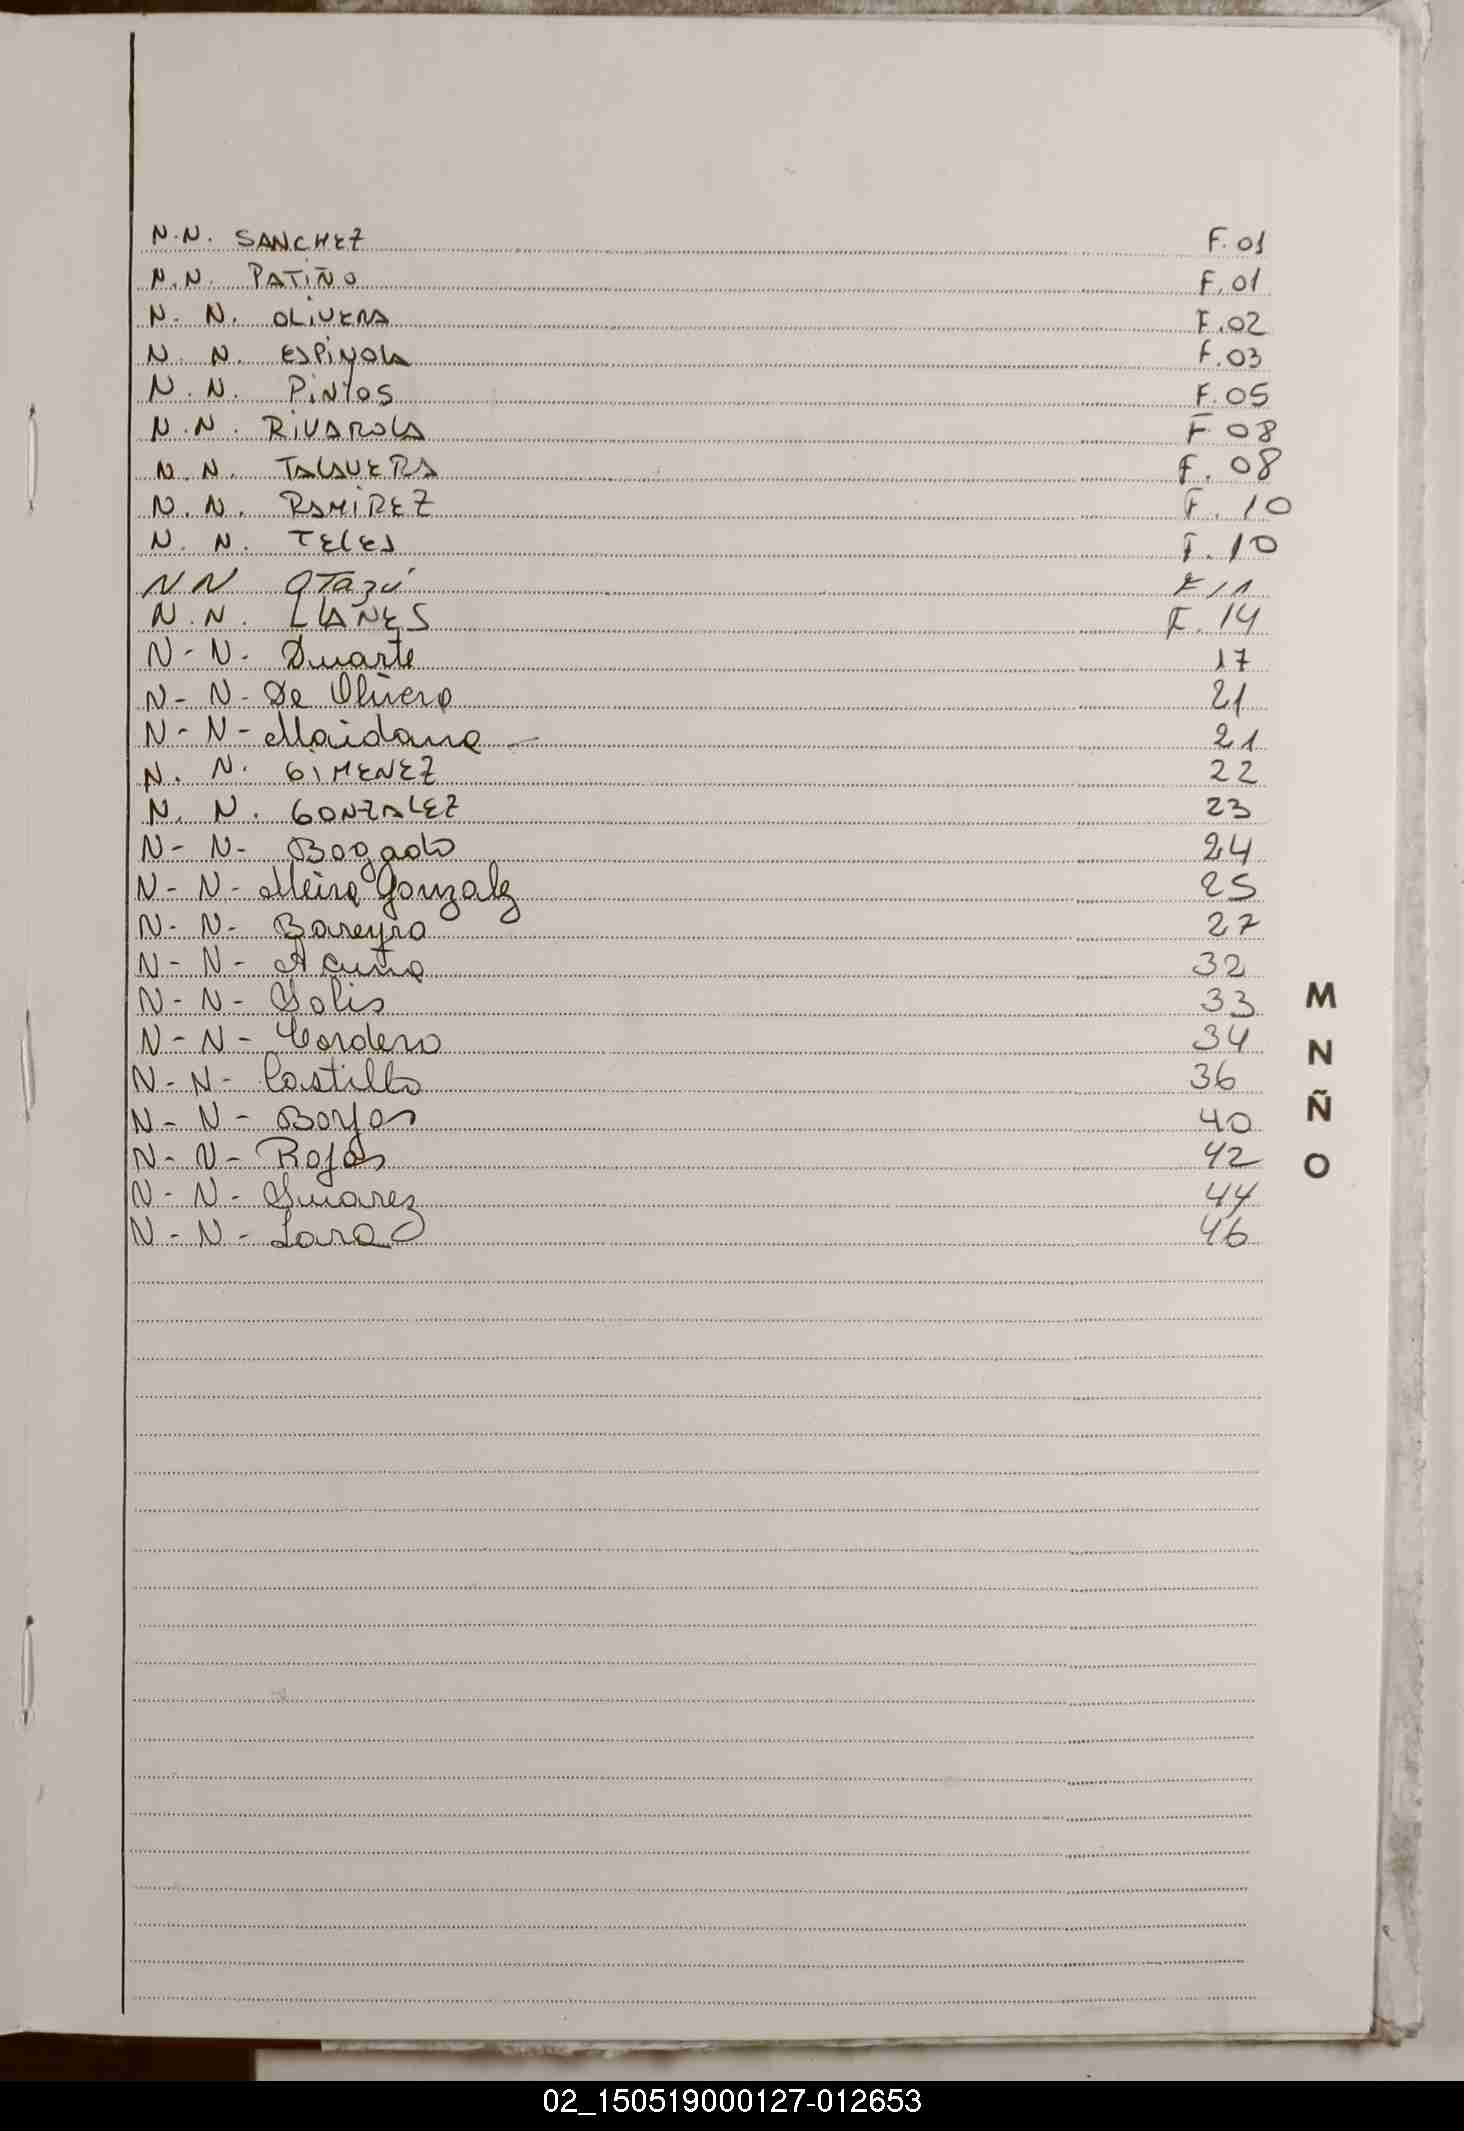 N.N. SANCHEZ F.01
N.N. PATIÑO F.01
N. N. OLIVERA F.02
N. N. ESPINOLA F.03
N. N. PINTOS F.05
N.N. RIVAROLA F 08
N.N. TALAVERA F. 08
N.N. RAMIREZ F. 10
N. N. TELES F. 10
NN OTazú F11
N.N. LLAÑES F. 14
N-N- Duarte 17
N-N- De Olivera 21
N-N- Maidana - 21
N. N. GIMENEZ 22
N. N. GONZALEZ 23
N-N- Bogado 24
N-N- Meira Gonzalez 25
N-N- Bareyro 27
N-N- Acuña 32
N-N- Solis 33
N-N- Cordero 34
N-N- Castillo 36
N-N- Borjas 40
N-N- Rojas 42
N-N- Suarez 44
N-N- Lara 46
M
N
Ñ
O
02_150519000127-012653